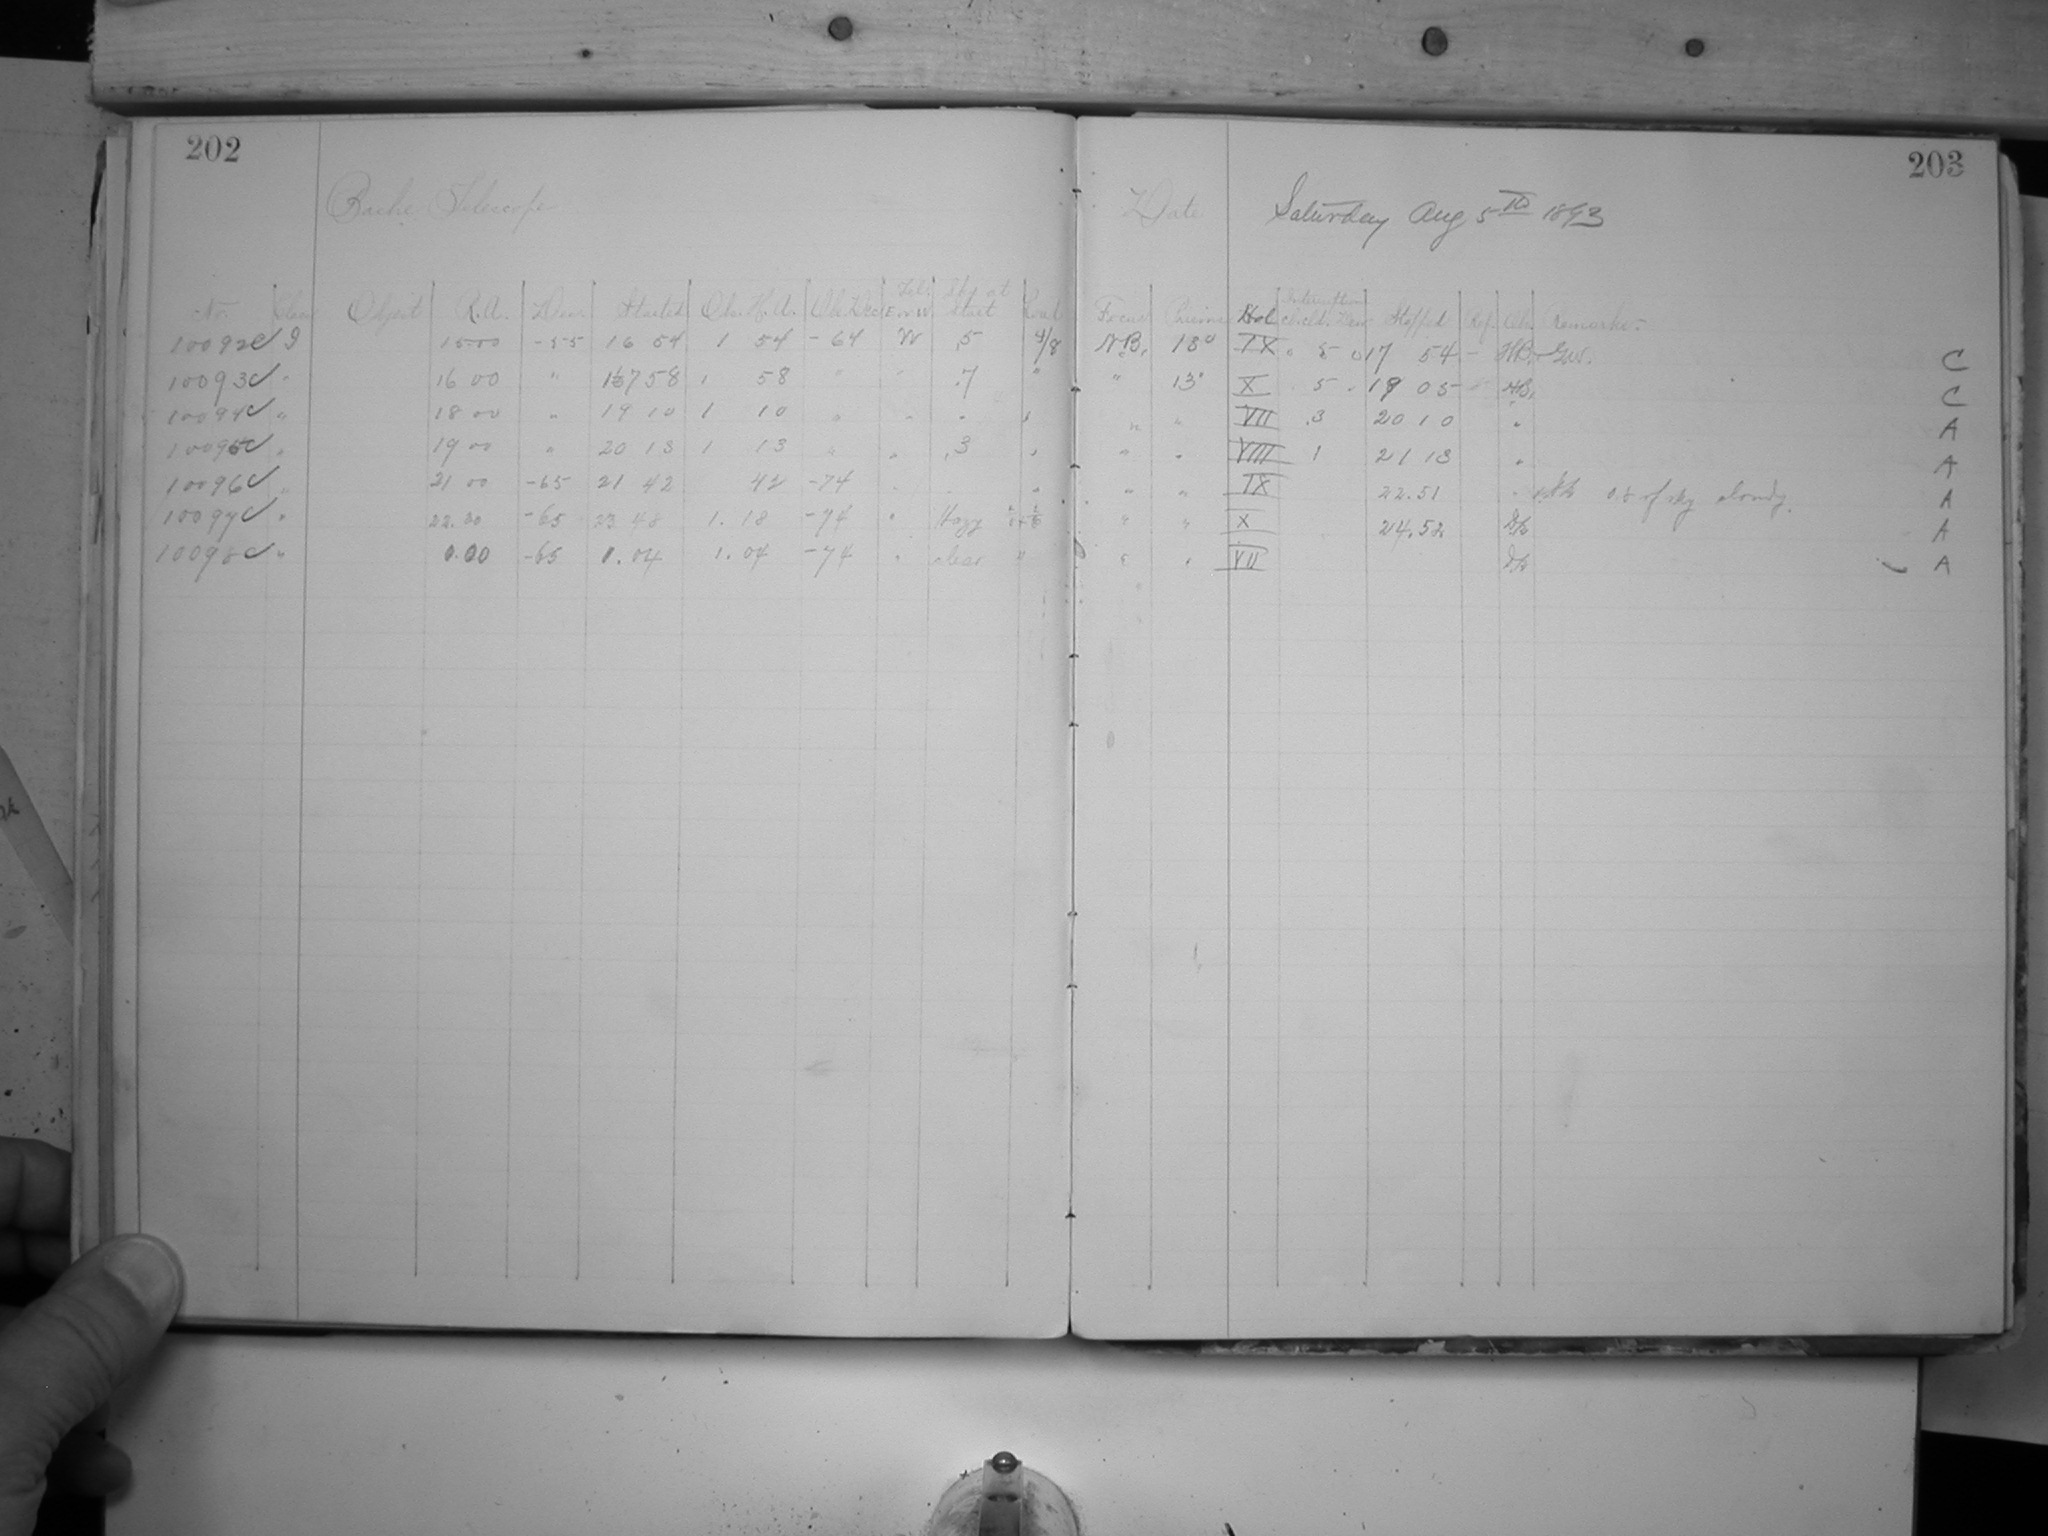 202
203
Bache Telescope Date Saturday Aug 5th 1893
No. Class Object R.A. Decn Started Obs. H.A. Obs Dec Tel. E. or W Sky at Start Focus Prisms Hol Interruption Stopped Ref. Ob. Remarks:-
10092 I 15 00 -55 16 54 1 54 -64 W .5 N.B. 13° IX 5 17 54 - C
10093 " 16 00 " 17 58 1 58 " " .7 " " 13° X 5 19 05 H.B. C
10094 " 18 00 " 19 10 1 10 " " " " " VII .3 20 10 " A
10095 " 19 00 " 20 13 1 13 " " .3 " " " VIII 1 21 13 " A
10096 " 21 00 -65 21 42 42 -74 " " " IX 22.51 " of sky cloudy. A
10097 " 22.30 -65 23 48 1.18 -74 " Hazy " " X 24.52 A
10098 " 0.00 -65 1.04 1.04 -74 " clear " " " VII A